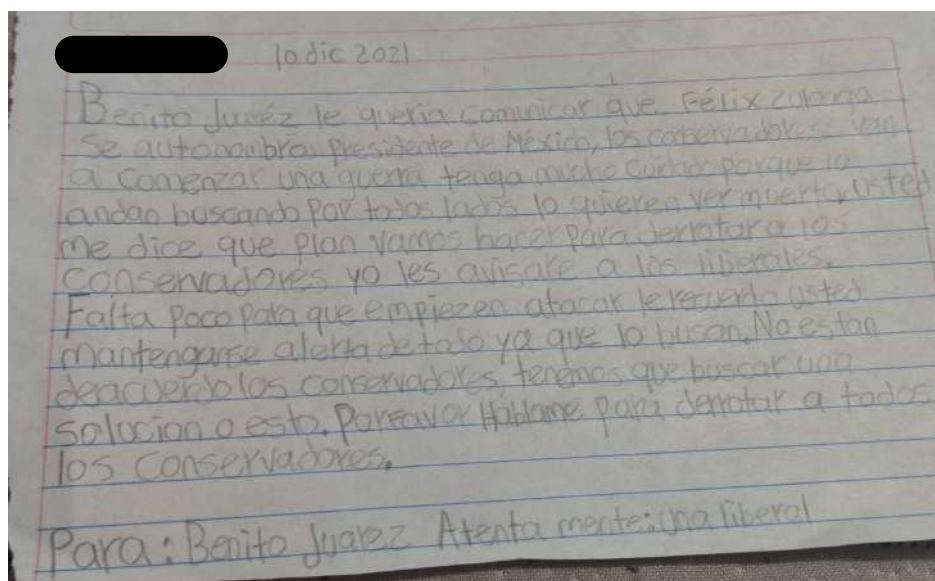 10 dic 2021
Benito Juaréz le queria comunicar que Félix zuloaga
se autonombro presidente de México, los conservadores van
a comenzar una guerra tenga mucho cuidado porque lo
andan buscando por todos lados lo quieren ver muerto, usted
me dice que plan vamos hacer para derrotar a los
conservadores yo les avisare a los liberales.
Falta poco para que empiezen atacar le recuerdo usted
mantengarse alerta de todo ya que lo busan. No estan
deacuerdo los conservadores tenemos que buscar una
solucion a esto. Porfavor Háblame para derrotar a todos
los conservadores.
Para: Benito Juarez Atenta mente: una liberal